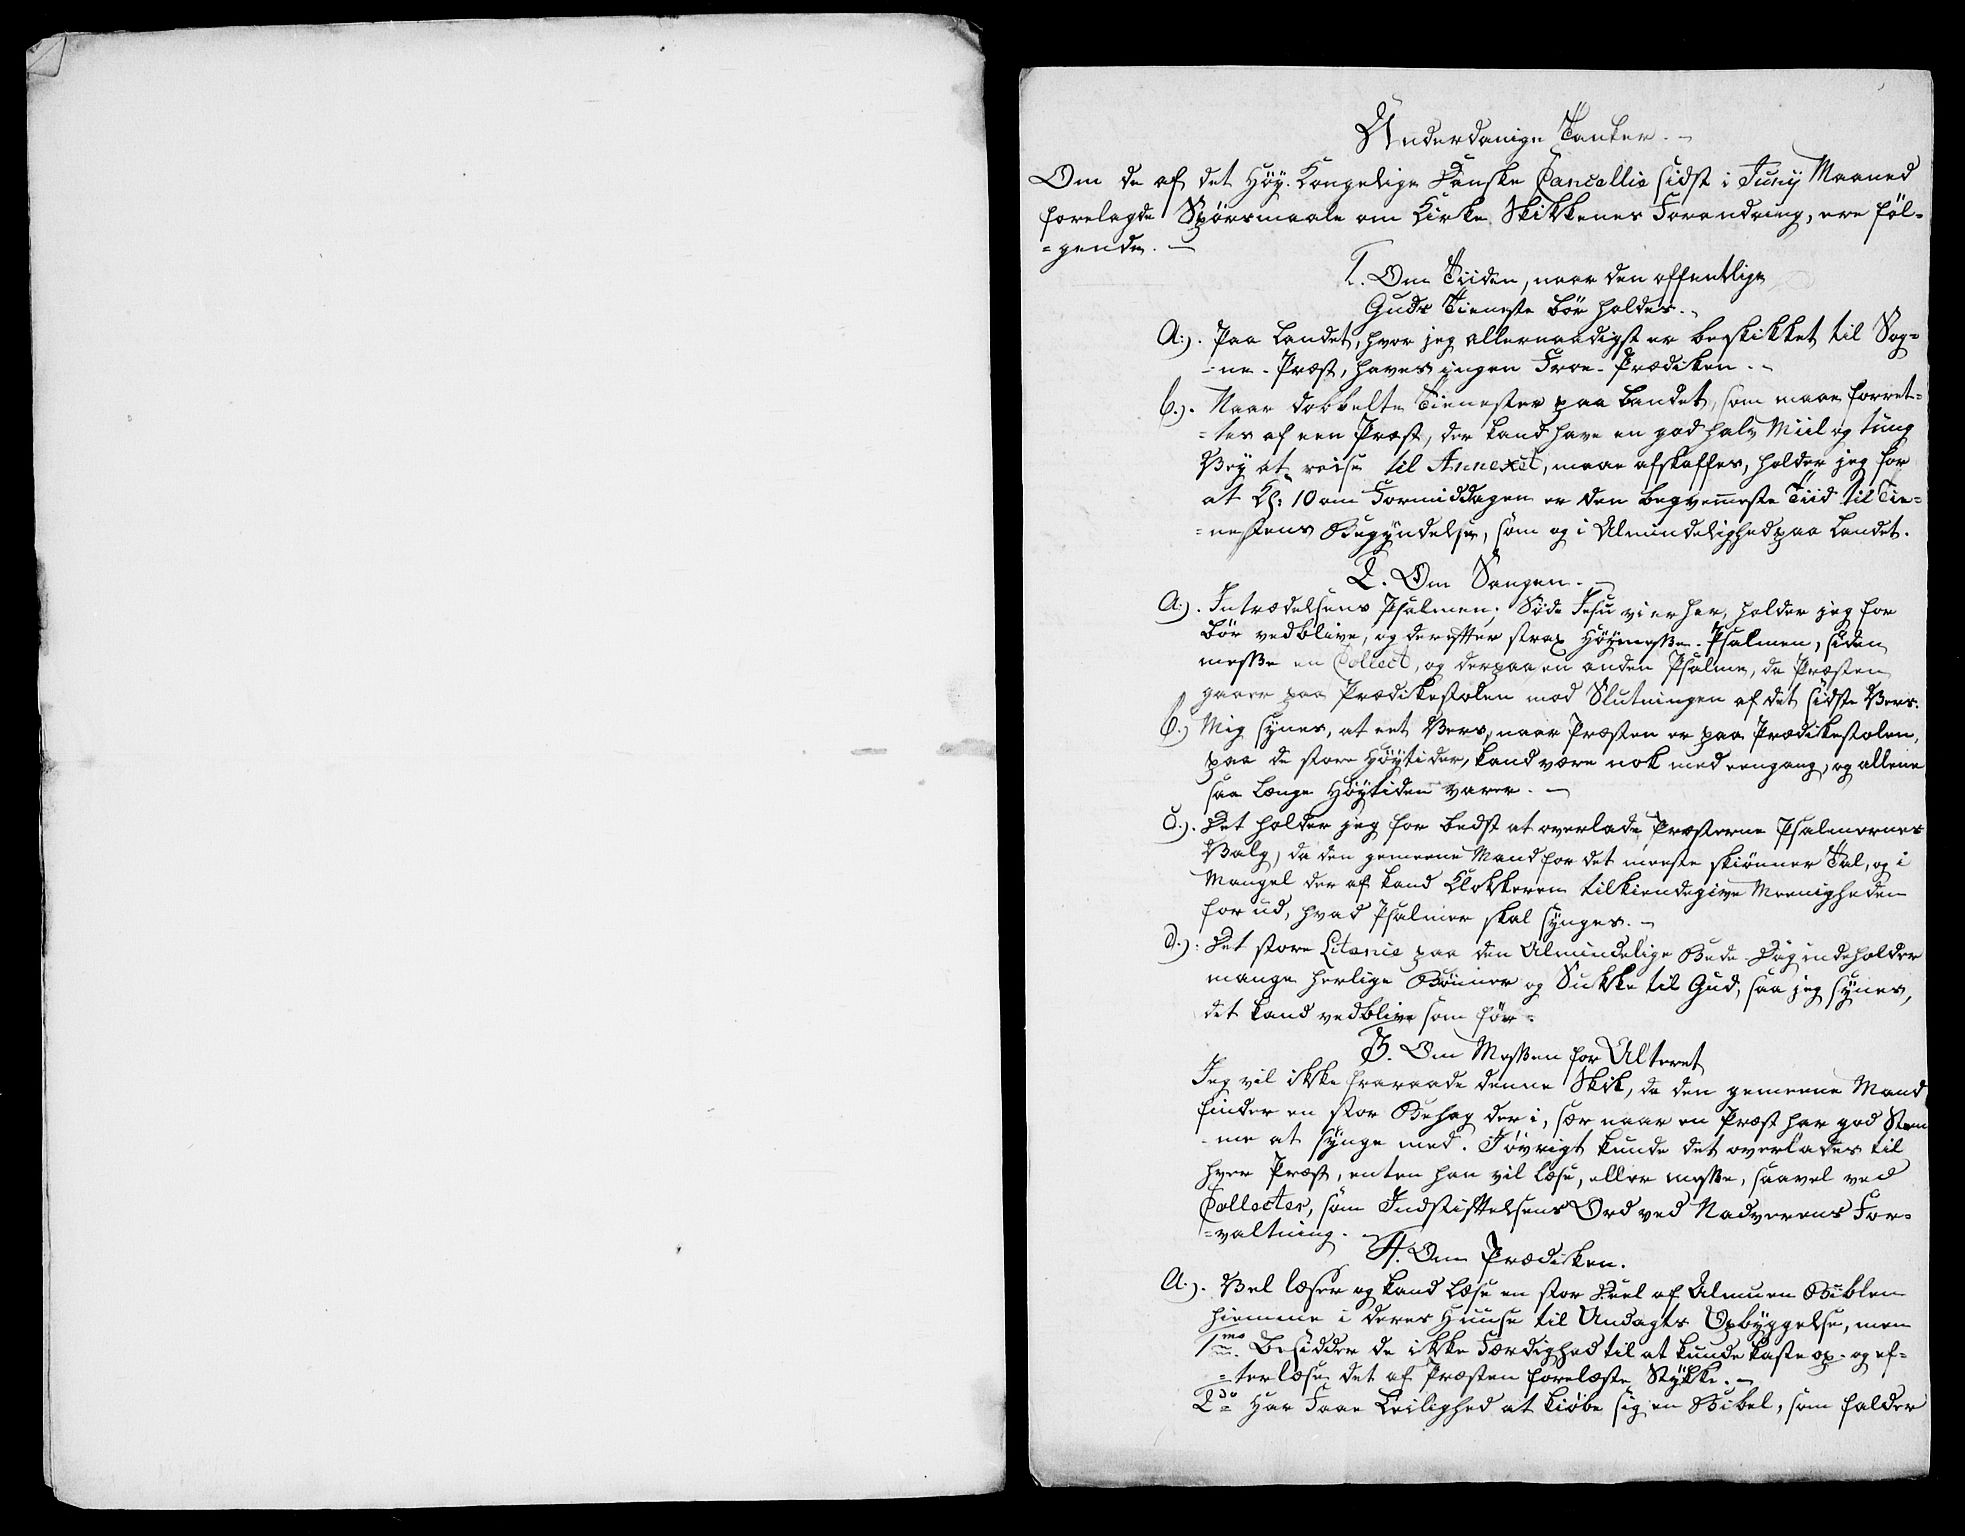 Underdanige Tanker. -
Om de af det Höy. Kongelige Danske Cancellie sidst i Juny Maaned
forelagde Spörsmaale om Kirke Skikkenes Forandring, ere föl-
-gende. -
1. Om Tiiden, naar den offentlige
Guds Tieneste bör holdes. -
A.). Paa Landet, hvor jeg allernaadigst er beskikket til Sog-
-ne-Præst, haves ingen Froe-Prædiken. -
b.). Naar dobbelte Tienester paa Landet, som maae forret-
-tes af een Præst, der kand have en god halv Miil og tung
Vey at reise til Annexet, maae afskaffes, holder jeg for
at Kl: 10 om Formiddagen er den beqvemmeste Tiid til Tie-
-nestens Begyndelse, som og i Almindelighed paa Landet.
2. Om Sangen. -
A.). Intrædelsens Psalmen: Söde Jesu vi er her, holder jeg for
bör vedblive, og derefter strax Höymesse-Psalmen, siden
messe en Collect, og derpaa en anden Psalme, da Præsten
gaaer paa Prædikestolen mod Slutningen af det sidste Vers.
b.) Mig synes, at eet Vers, naar Præsten er paa Prædikestolen,
paa de store Höytider, kand være nok med eengang, og allene
saa længe Höytiden varer. -
c.). Det holder jeg for bedst at overlade Præsterne Psalmernes
Valg, da den gemeene Mand for det meeste skiönner Tal, og i
Mangel der af kand Klokkeren tilkiendegive Meenigheden
for ud, hvad Psalmer skal synges. -
d.). Det store Litanie paa den Almindelige Bede-Dag indeholder
mange herlige Bönner og Sukke til Gud, saa jeg synes,
det kand vedblive som för.
3. Om Messen for Alteret
Jeg vil ikke fraraade denne Skik, da den gemeene Mand
finder en stor Behag der i, sær naar en Præst har god Stem
-me at synge med. Iövrigt kunde det overlades til
hver Præst, enten han vil læse, eller messe, saavel ved
Collecter, som Indstiftelsens Ord ved Nadverens For-
-valtning. -
4. Om Prædiken.
A.). Vel læser og kand læse en stor Deel af Almuen Biblen
hiemme i deres Huuse til Andagts Opbyggelse, men
1mo. Besidder de ikke Færdighed til at kunde kaste op- og ef-
-terlæse det af Præsten forelæste Stykke. -
2do Har Faae Leilighed at kiöbe sig en Bibel, som falder